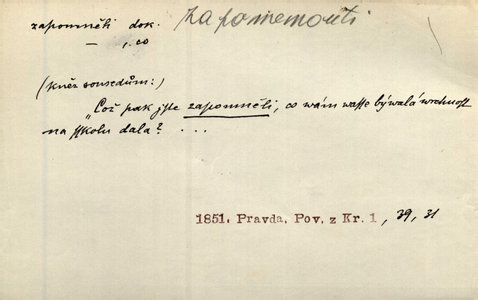 zapomněti dok. zapomenouti
— , co
(kněz sousedům:)
„Což pak jste zapomněli, co wám waße býwalá wrchnost
na sskolu dala? ...
1851. Pravda, Pov. z Kr. 1, 39, 31